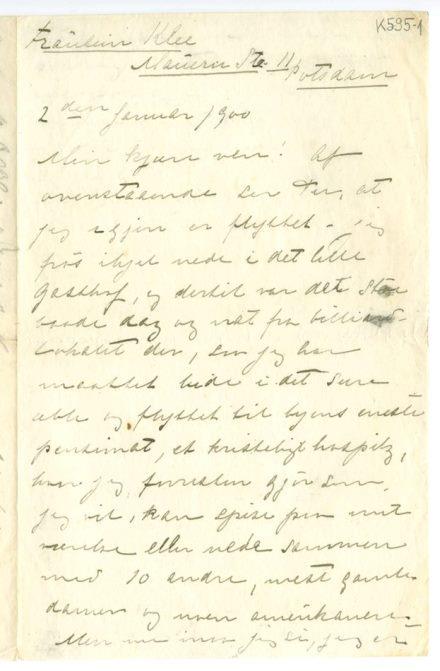 K595-1
Fräulein Klee
Mauern Str. 11 Potsdam
2 den Januar 1900
Min kjære ven! Af
ovenstaaende ser Du, at
jeg igjen er flyttet. Jeg
frøs ihjel nede i det lille
Gasthof, og dertil var det støi
baade dag og nat fra billiard-
lokalet der, saa jeg har
maattet bide i det sure
æble og flyttet til byens eneste
pensionat, et kristeligt hospitz,
hvor jeg forresten gjør som
jeg vil, kan spise paa mit
værelse eller nede sammen
med 10 andre, mest gamle
damer og noen amerikanere.
Men nu maa jeg si, jeg er